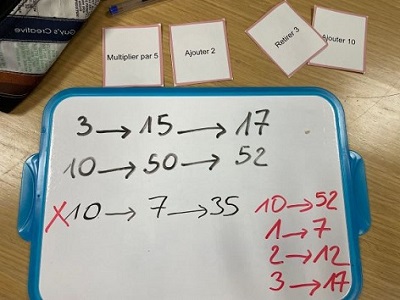 Guy's Creative
Multiplier par 5
Ajouter 2
Retirer 3
Ajouter 10
3 → 15 → 17
10 → 50 → 52
X 10 → 7 → 35
10 → 52
1 → 7
2 → 12
3 → 17